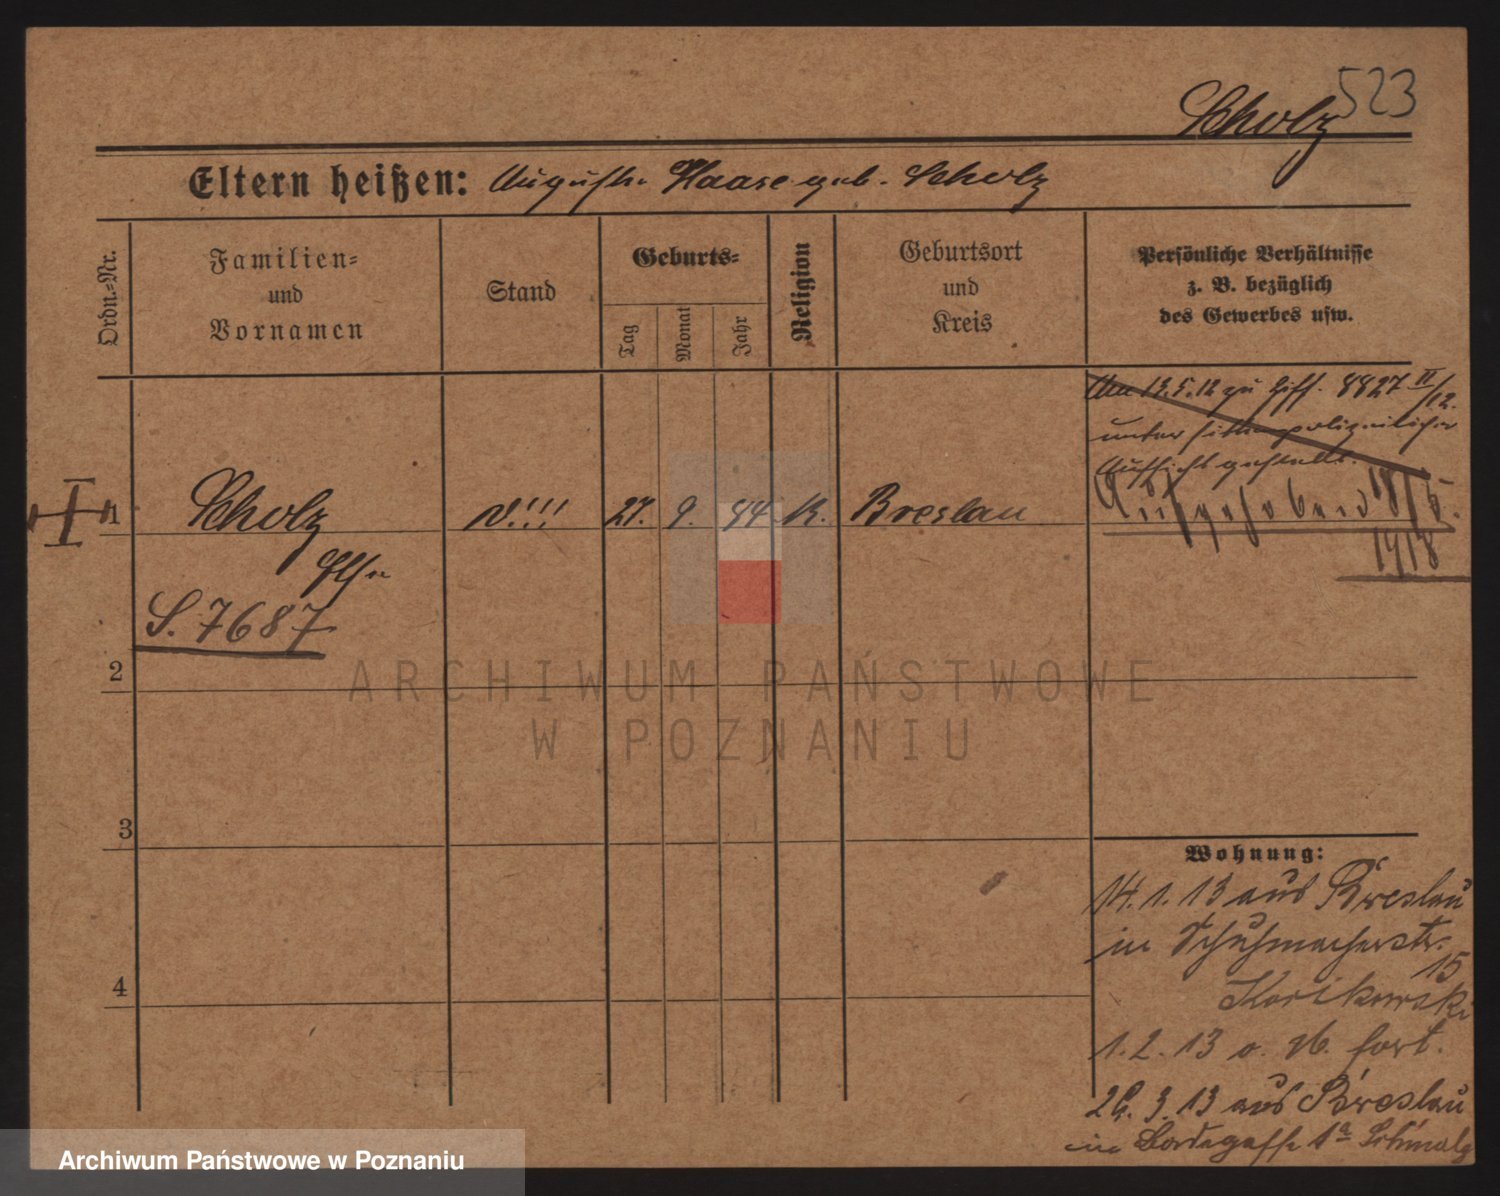 523
Scholz
Eltern heißen: Auguste Haase geb. Scholz
Ordn.-Nr.
Familien-
und
Vornamen
Stand
Geburts-
Tag
Monat
Jahr
Religion
Geburtsort
und
Kreis
Persönliche Verhältnisse
z. B. bezüglich
des Gewerbes usw.
Am 13.5.12 zu 8827 II/12.
unter sittenpolizeilicher
Aufsicht gestellt.
1 Scholz 27. 9. K. Breslau
Aufgehoben 18/5.
1918
Else
S. 7687
2
3
4
Wohnung:
14. 1. 13 aus Breslau
in Schuhmacherstr.
15
1. 2. 13 o. Ab. fort.
26. 3. 13 aus Breslau
in 1a
ARCHIWUM PAŃSTWOWE
W POZNANIU
Archiwum Państwowe w Poznaniu